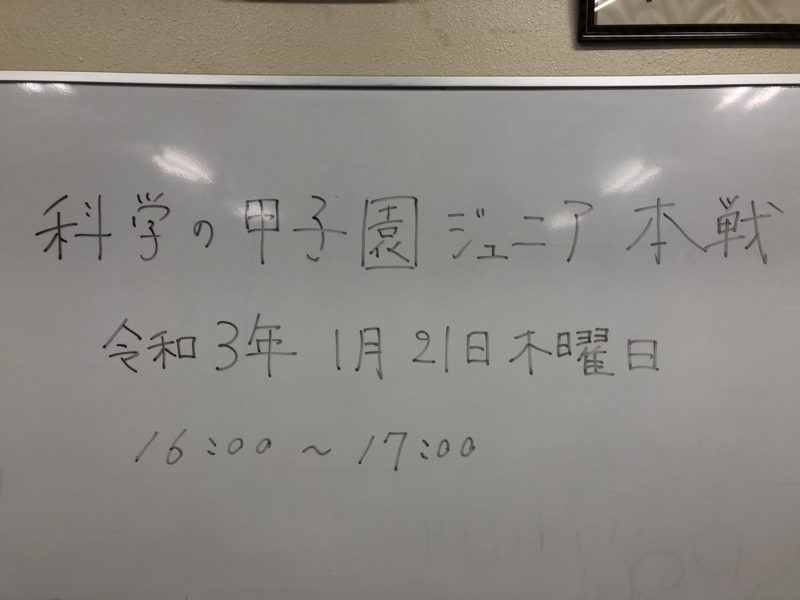 科学の甲子園ジュニア 本戦
令和3年 1月21日木曜日
16:00 ～ 17:00